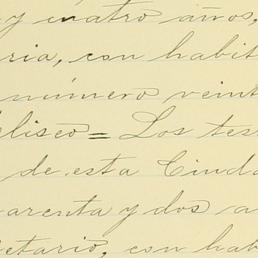 y cuatro años,
ria, con habit
número veint
eliseo = Los tes
de esta Ciuda
arenta y dos a
ietario, con hab